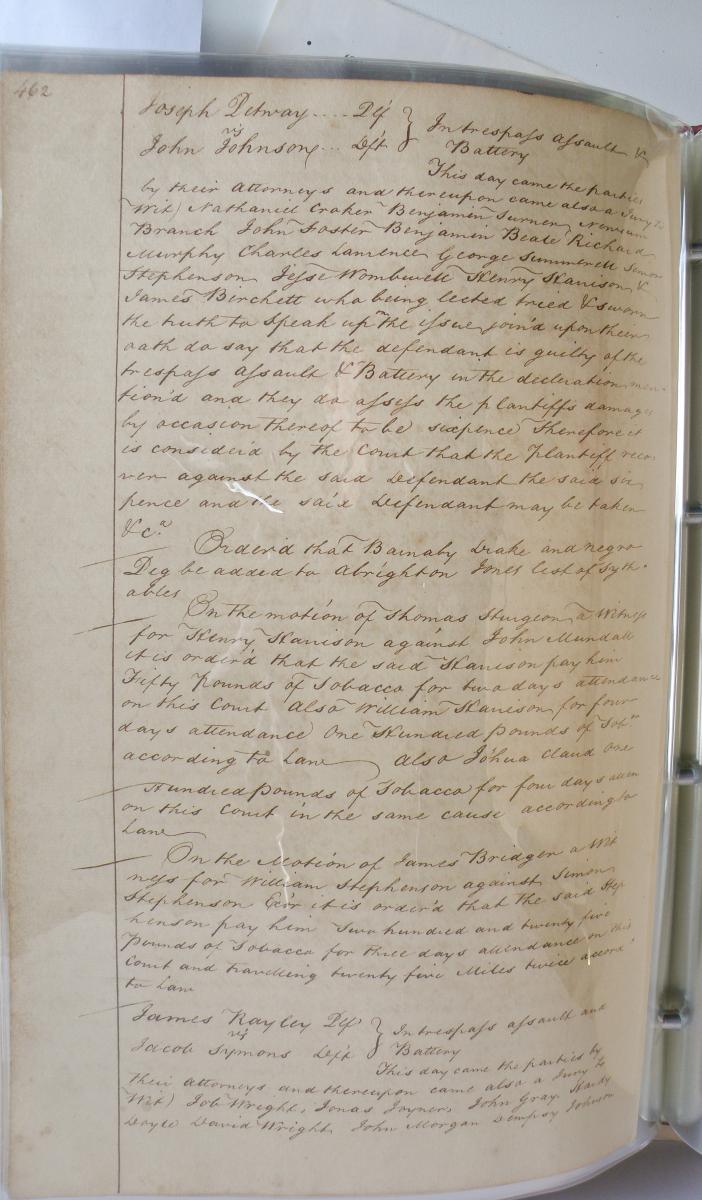 462
Joseph Petway .... Plf } In trespass assault &
vs
John Johnson ... Deft } Battery
This day came the parties
by their attorneys and thereupon came also a Jury to
Wit) Nathaniel Croker Benjamin Turner Newsum
Branch John Foster Benjamin Beale Richard
Murphy Charles Laurence George Summerell Simon
Stephenson Jesse Wombwell Henry Harrison &
James Birchett who being lected tried & sworn
the truth to speak upon the issue join'd upon their
oath do say that the defendant is guilty of the
trespass assault & Battery in the decleration men
tion'd and they do assess the plantiffs damages
by occasion thereof to be sixpence Therefore it
is consider'd by the Court that the Plantiff reco
ver against the said Defendant the said six
pence and the said Defendant may be taken
&ca
Order'd that Barnaby Drake and negro
Peg be added to Abrighton Jones list of Tyth
ables
On the motion of Thomas Sturgeon a Witness
for Henry Harrison against John Mundall
it is order'd that the said Harrison pay him
Fifty Pounds of Tobacco for two days attendance
on this Court also William Harrison for four
days attendance One Hundred pounds of Tobo
according to Law also Joshua Claud One
Hundred pounds of Tobacco for four days atten
on this Court in the same cause according to
Law
On the Motion of James Bridger a Wit
ness for William Stephenson against Simon
Stephenson Exor it is order'd that the said Step
henson pay him Two hundred and twenty five
Pounds of Tobacco for three days attendance on this
Court and travelling twenty five Miles twice accord
to Law
James Rayley Plf } In trespass assault and
vs
Jacob Symons Deft } Battery
This day came the parties by
their attorneys and thereupon came also a Jury to
Wit) Job Wright, Jonas Joyner, John Gray Hardy
Doyle David Wright John Morgan Dempsy Johnson